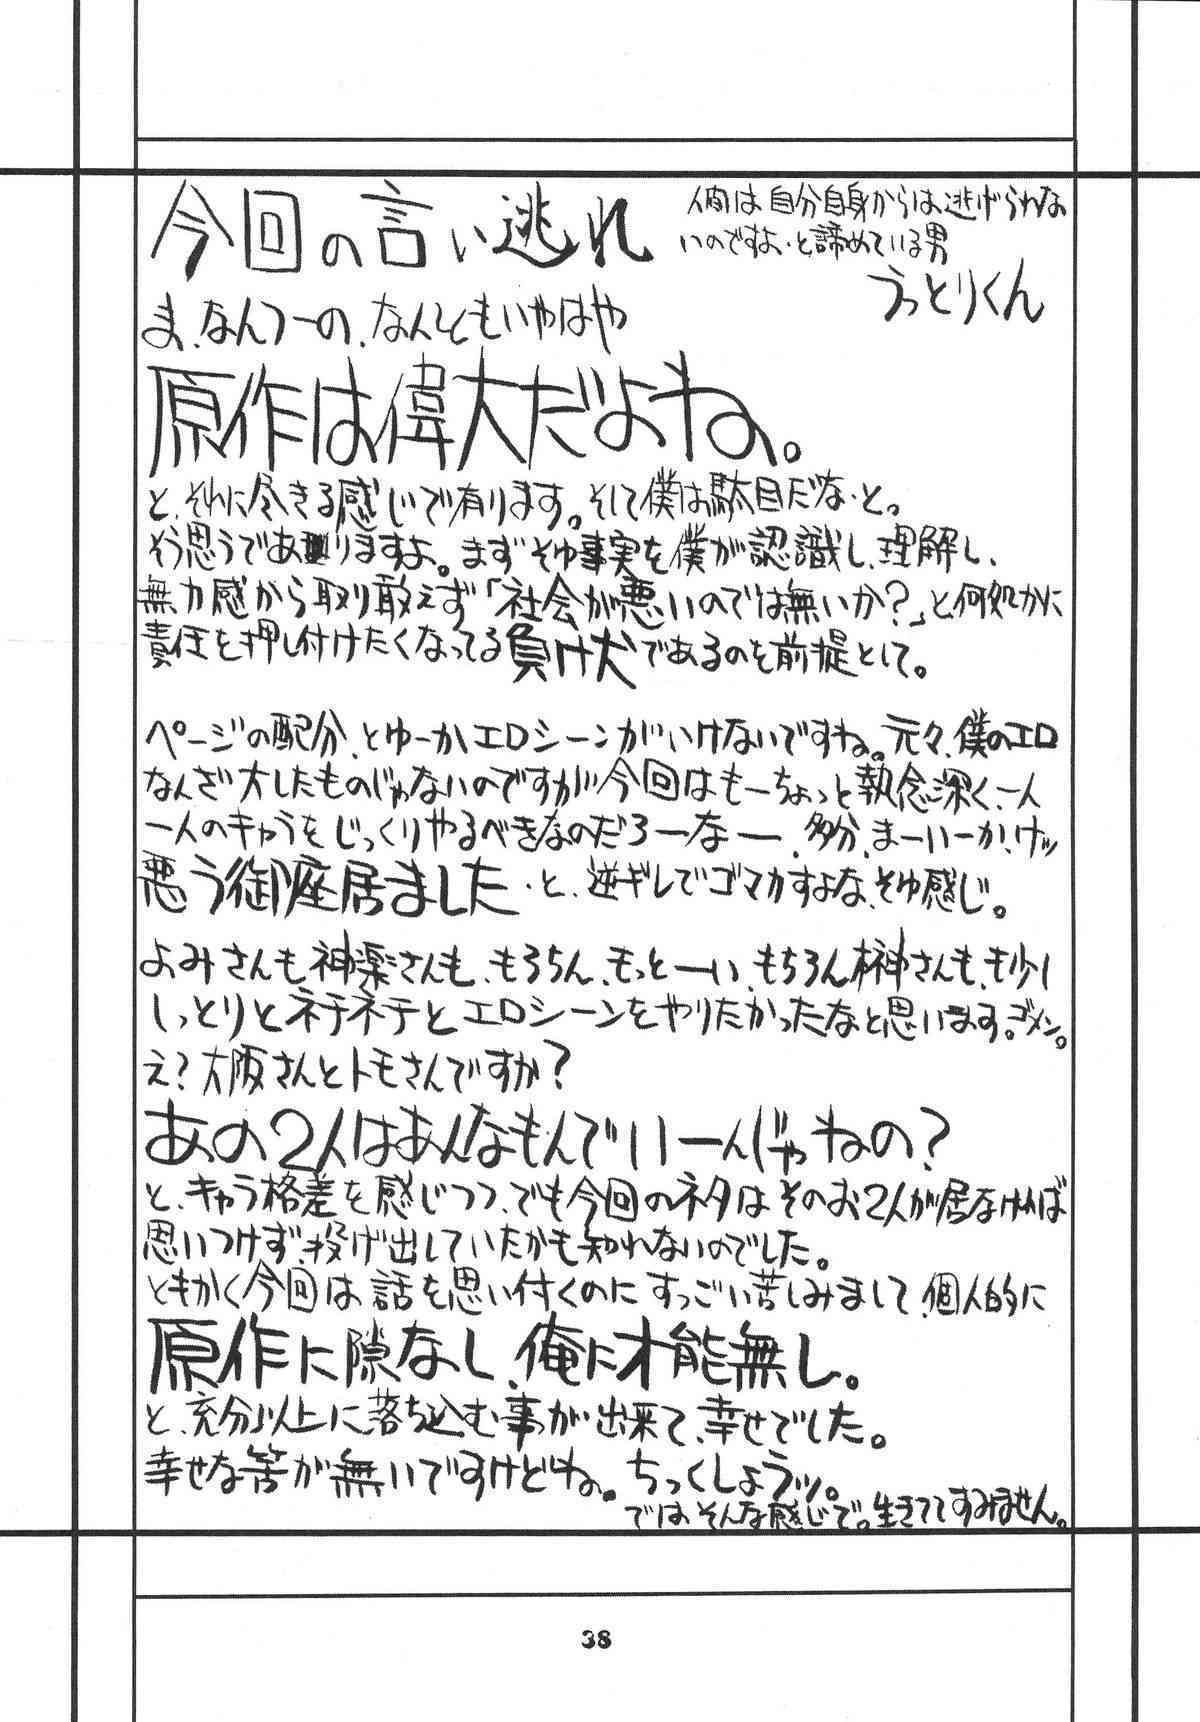 今回の言い逃れ
人間は自分自身からは逃げられな
いのですよ・と諦めている男
うっとりくん
ま、なんつーの、なんともいやはや
原作は偉大だよね。
と、それに尽きる感じで有ります。そして僕は駄目だな・と。
そう思うでありますよ。まずそゆ事実を僕が認識し、理解し、
無力感から取り敢えず「社会が悪いのでは無いか?」と何処かに
責任を押し付けたくなってる負け犬であるのを前提として。
ページの配分、とゆーかエロシーンがいけないですね。元々、僕のエロ
なんざ大したものじゃないのですが今回はもーちょっと執念深く、一人
一人のキャラをじっくりやるべきなのだろーなー、多分、まーいーか、けッ
悪う御座居ました・と、逆ギレでゴマカすよな、そゆ感じ。
よみさんも、神楽さんも、もろちん、もっとーい、もちろん榊さんも、も少し
しっとりとネチネチとエロシーンをやりたかったなと思います。ゴメン。
え?大阪さんとトモさんですか?
あの2人はあんなもんでいーんじゃねの?
と、キャラ格差を感じつつ、でも今回のネタはそのお2人が居なければ
思いつけず投げ出していたかも知れないのでした。
ともかく今回は話を思い付くのにすっごい苦しみまして、個人的に
原作に隙なし、俺に才能無し。
と、充分以上に落ち込む事が出来て、幸せでした。
幸せな筈が無いですけどね。ちっくしょうッ。
では、そんな感じで。生きててすみません。
38